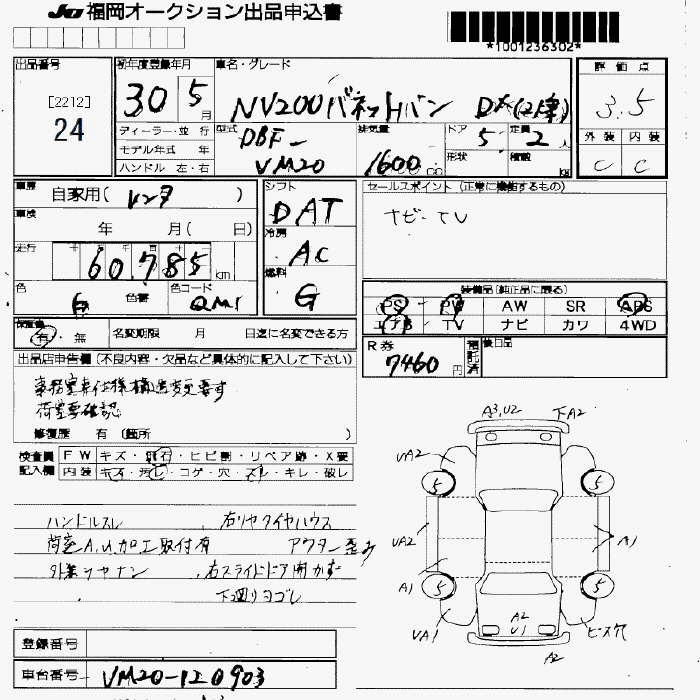 JU 福岡オークション出品申込書
*1001236302*
出品番号
[2212]
24
初年度登録年月
30 5 月
車名・グレード
NV200バネットバン DX(2人乗)
評価点
3.5
外装 内装
C C
ディーラー・並行
モデル年式 年
ハンドル 左・右
型式
DBF-
VM20
排気量
1600 cc
ドア
5
形状
定員
2 人
積載
kg
車歴
自家用( レンタ )
車検
年 月( 日)
走行
60,785 km
色
色番
色コード
QM1
シフト
DAT
冷房
AC
燃料
G
セールスポイント (正常に機能するもの)
ナビ・TV
装備品(純正品に限る)
PS PW AW SR ABS
エアB TV ナビ カワ 4WD
R券
7460 円
預託済
後日品
保証書
有・無
名変期限 月 日迄に名変できる方
出品店申告欄(不良内容・欠品など具体的に記入して下さい)
事務室車仕様構造変更要す
荷室要確認
修復歴 有 (箇所 )
検査員記入欄
FW キズ・飛石・ヒビ割・リペア跡・X要
内装 キズ・汚レ・コゲ・穴・スレ・キレ・破レ
ハンドルスレ 右リヤタイヤハウス
荷室A,U,加工取付有 アウター歪み
外装ツヤナシ 右スライドドア開かず
下廻りヨゴレ
A3,U2 下A2
UA2
5 5
UA2 A1
A1
5 5
UA1
A2
U1
ビス穴
A2
登録番号
車台番号 VM20-120903